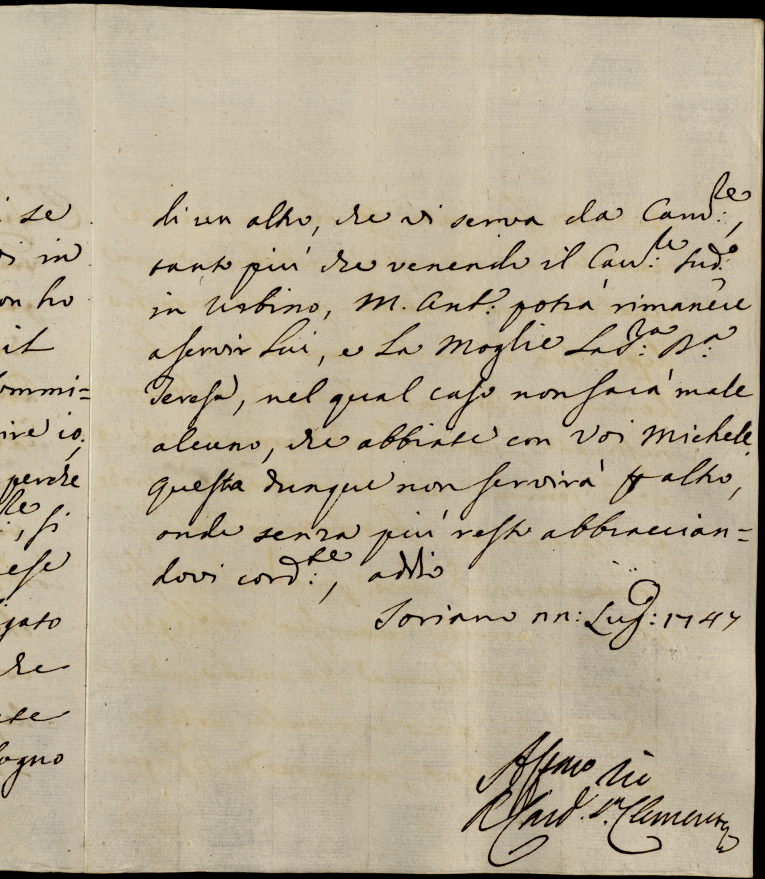 i se
di in
on ho
it
ommi=
ire io;
perche
re, si
ese
gato
che
te
ogno
di un altro, che vi serva da Cam.re,
tanto più che venendo il Cav.le Sud.o
in Urbino, M. Ant.o potrà rimanere
a servir Lui, e La Moglie La S.ra D.a
Teresa, nel qual caso non sarà male
alcuno, che abbiate con voi Michele.
Questa dunque non servirà p altro,
onde senza più resto abbraccian=
dovi cord.te, addio
Soriano 11: Lug.o: 1747
Aff.mo Zio
Il Card. S. Clemente